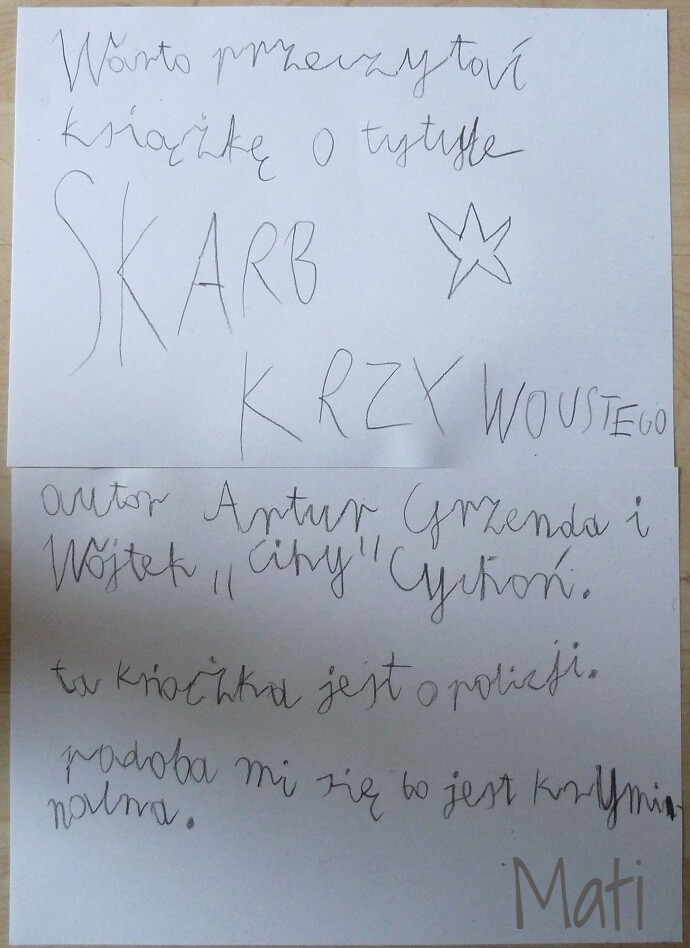 Warto przeczytać
książkę o tytule
SKARB
KRZYWOUSTEGO
autor Artur Grzenda i
Wójtek „Cihy" Cychoń.
ta ksiożka jest o policji.
podoba mi się bo jest krymi
nalna.
Mati